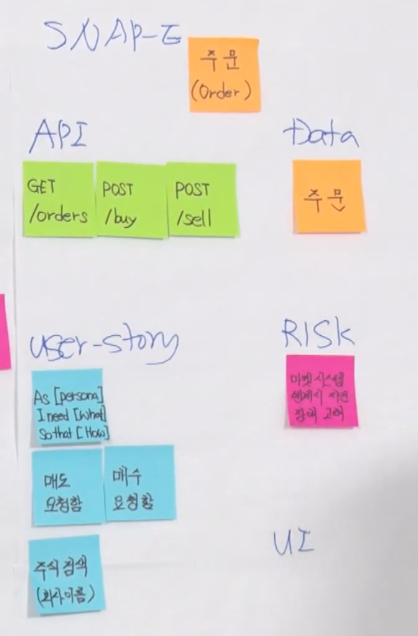 SNAP-E
주문
(Order)
API
GET
/orders
POST
/buy
POST
/sell
Data
주문
user-story
As [persona]
I need [What]
So that [How]
매도
요청함
매수
요청함
주식 검색
(회사이름)
RISK
마켓시스템
장애 고려
UI